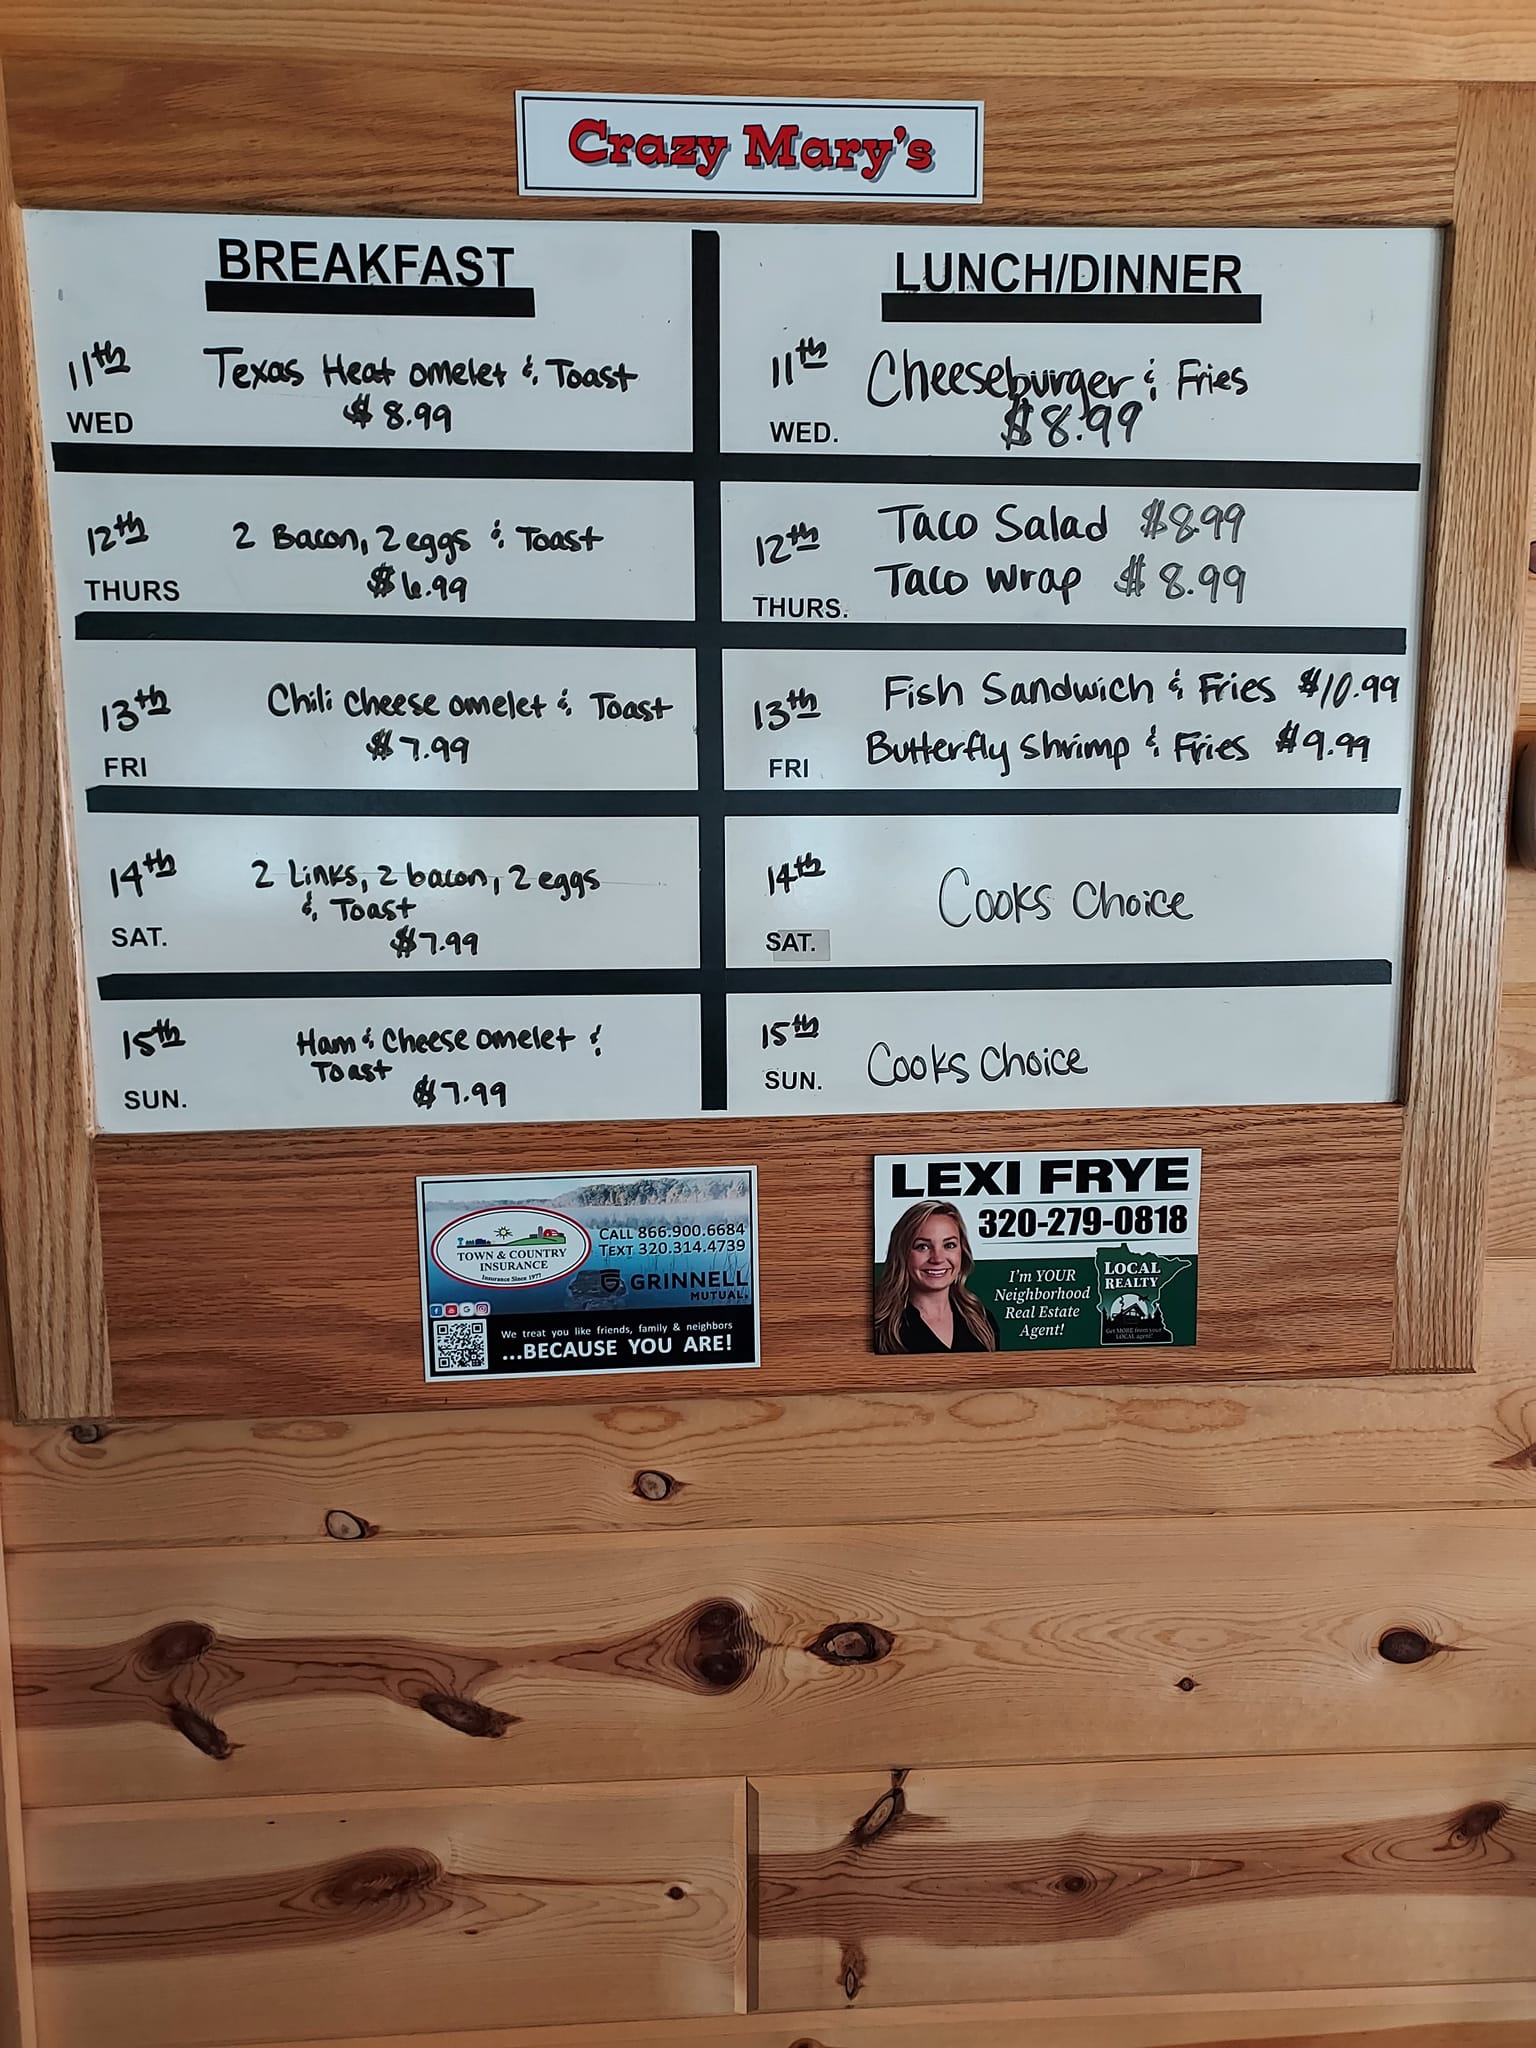 Crazy Mary's
BREAKFAST
11th
WED
Texas Heat omelet & Toast
$8.99
12th
THURS
2 Bacon, 2 eggs & Toast
$6.99
13th
FRI
Chili cheese omelet & Toast
$7.99
14th
SAT.
2 Links, 2 bacon, 2 eggs
& Toast
$7.99
15th
SUN.
Ham & Cheese omelet &
Toast
$7.99
LUNCH/DINNER
11th
WED.
Cheeseburger & Fries
$8.99
12th
THURS.
Taco Salad $8.99
Taco Wrap $8.99
13th
FRI
Fish Sandwich & Fries $10.99
Butterfly Shrimp & Fries $9.99
14th
SAT.
Cooks Choice
15th
SUN.
Cooks Choice
TOWN & COUNTRY
INSURANCE
Insurance Since 1977
CALL 866.900.6684
TEXT 320.314.4739
GRINNELL
MUTUAL.
We treat you like friends, family & neighbors
...BECAUSE YOU ARE!
LEXI FRYE
320-279-0818
I'm YOUR
Neighborhood
Real Estate
Agent!
LOCAL
REALTY
Get MORE from your
LOCAL agent!